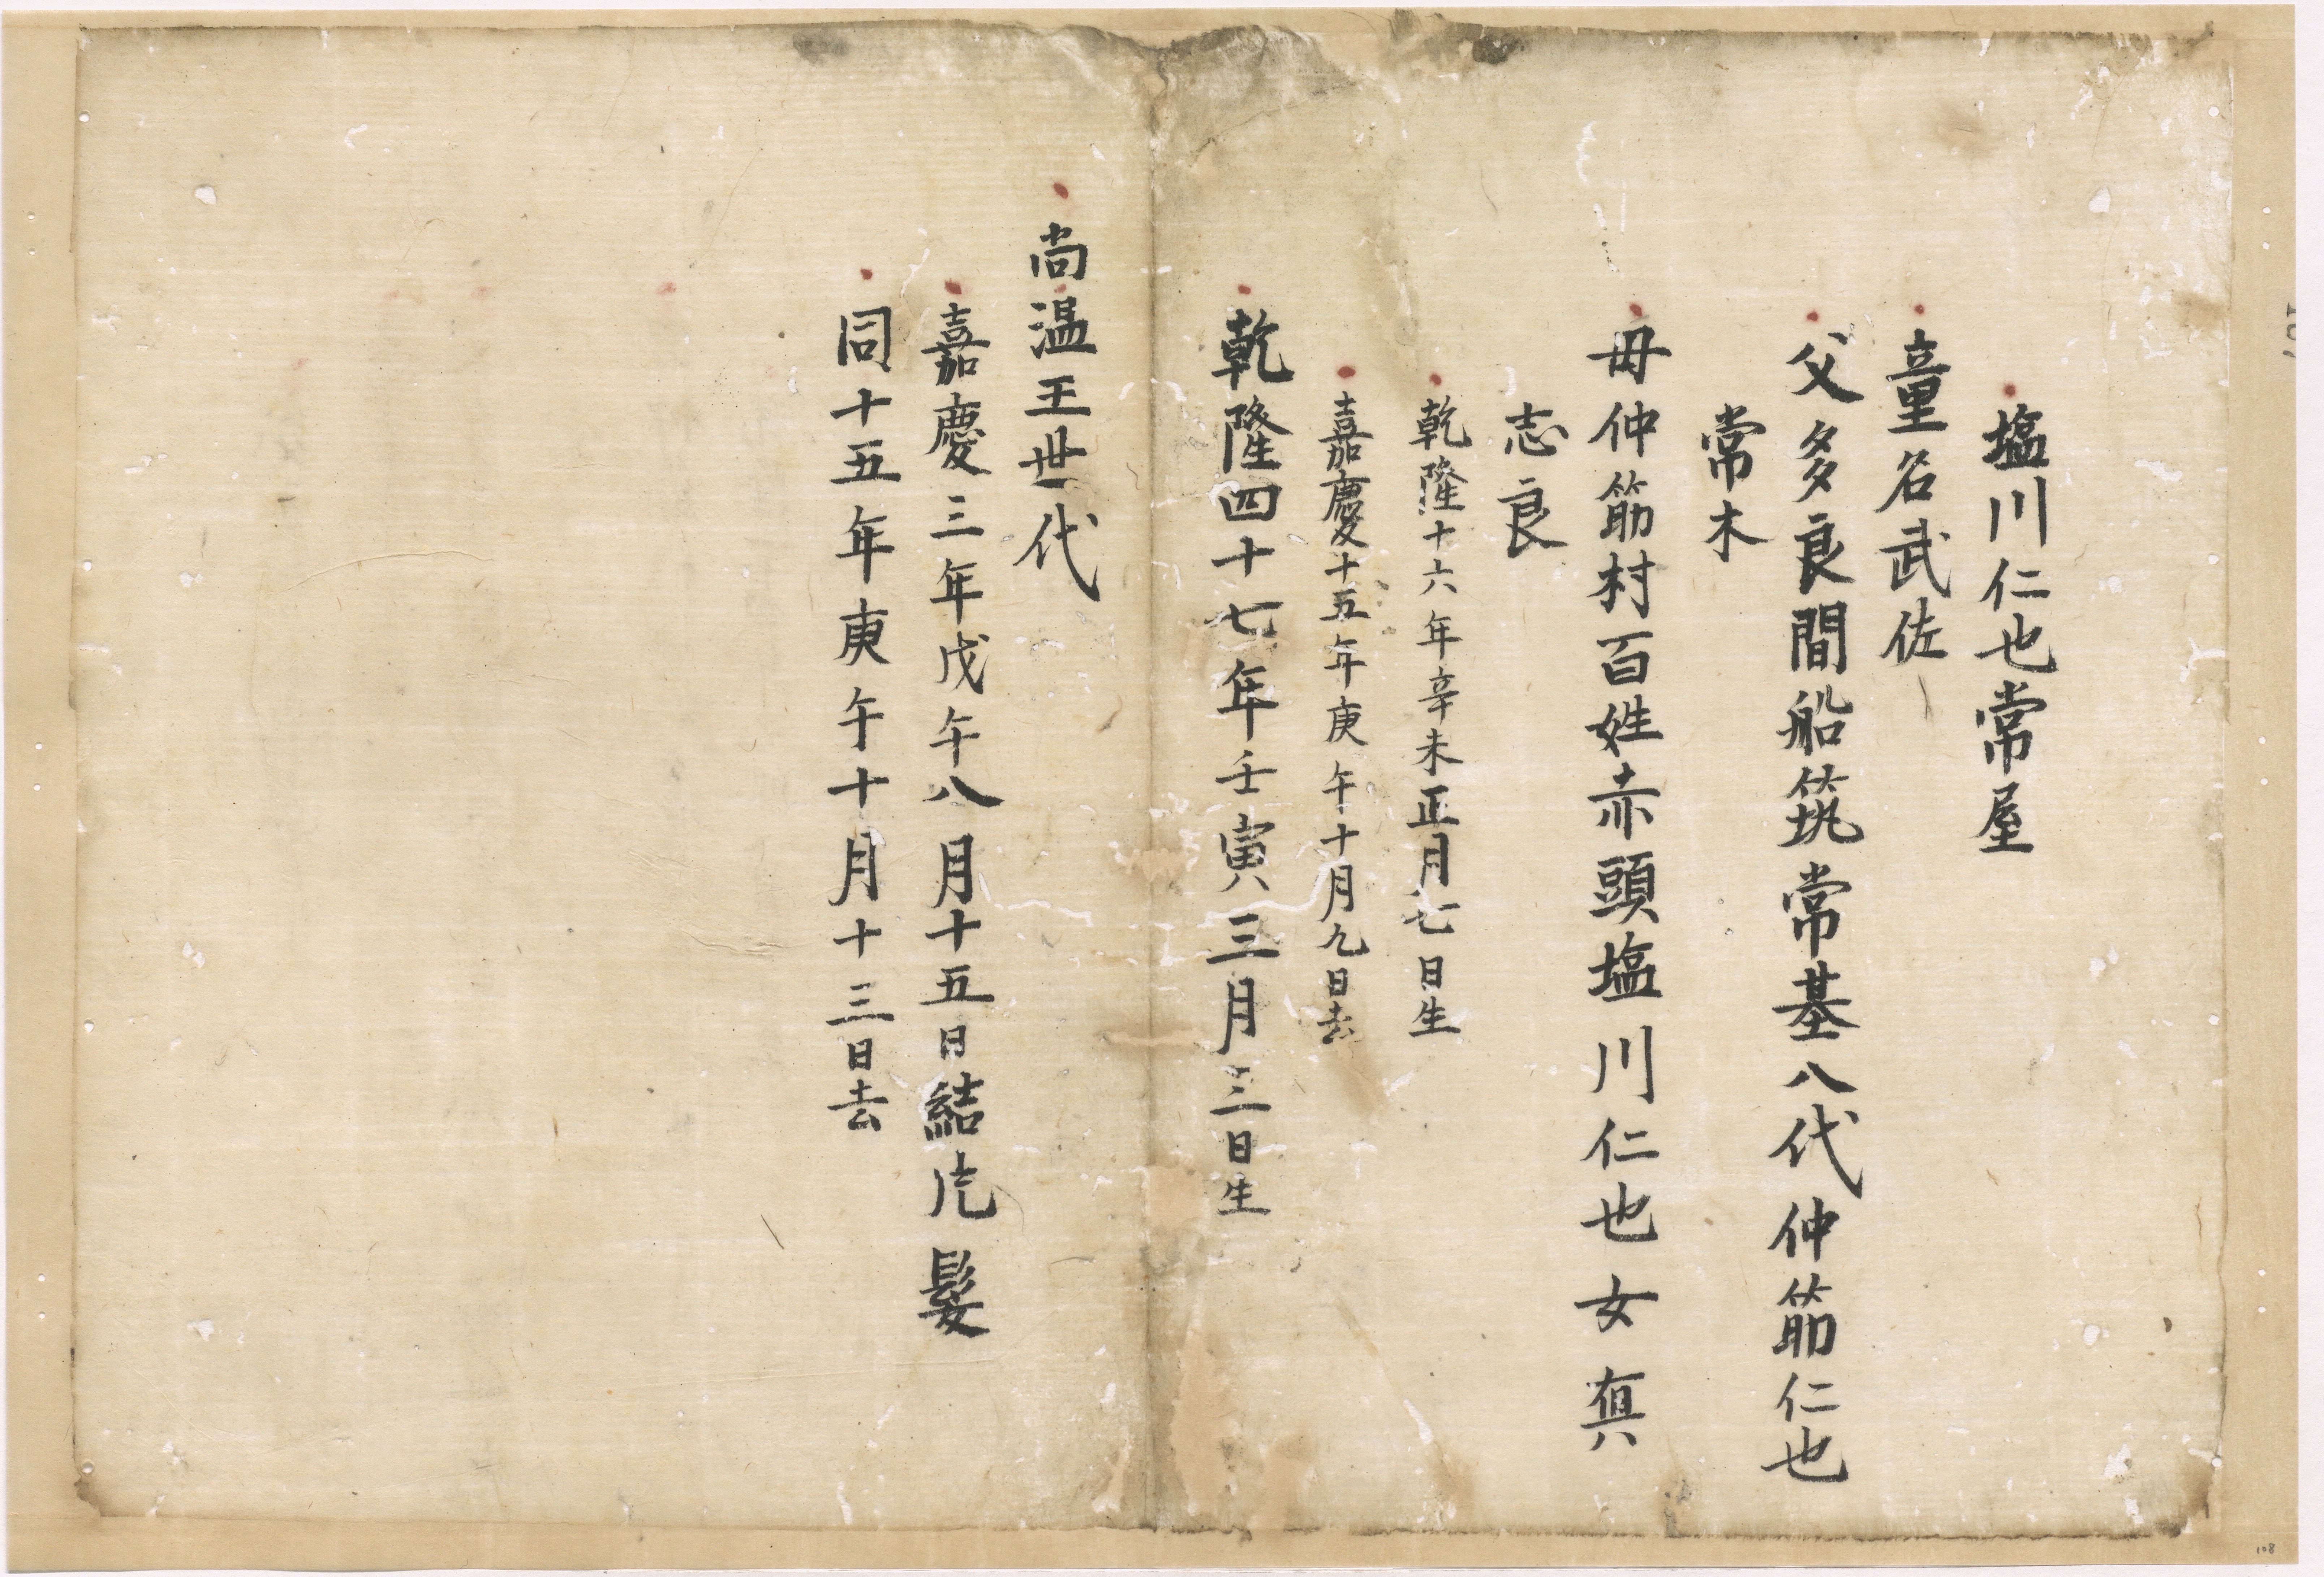 塩川仁也常屋
童名武佐
父多良間船筑常基八代仲筋仁也
常木
母仲筋村百姓赤頭塩川仁也女真
志良
乾隆十六年辛未正月七日生
嘉慶十五年庚午十月九日去
乾隆四十七年壬寅三月三日生
尚温王世代
嘉慶三年戊午八月十五日結片髮
同十五年庚午十月十三日去
108